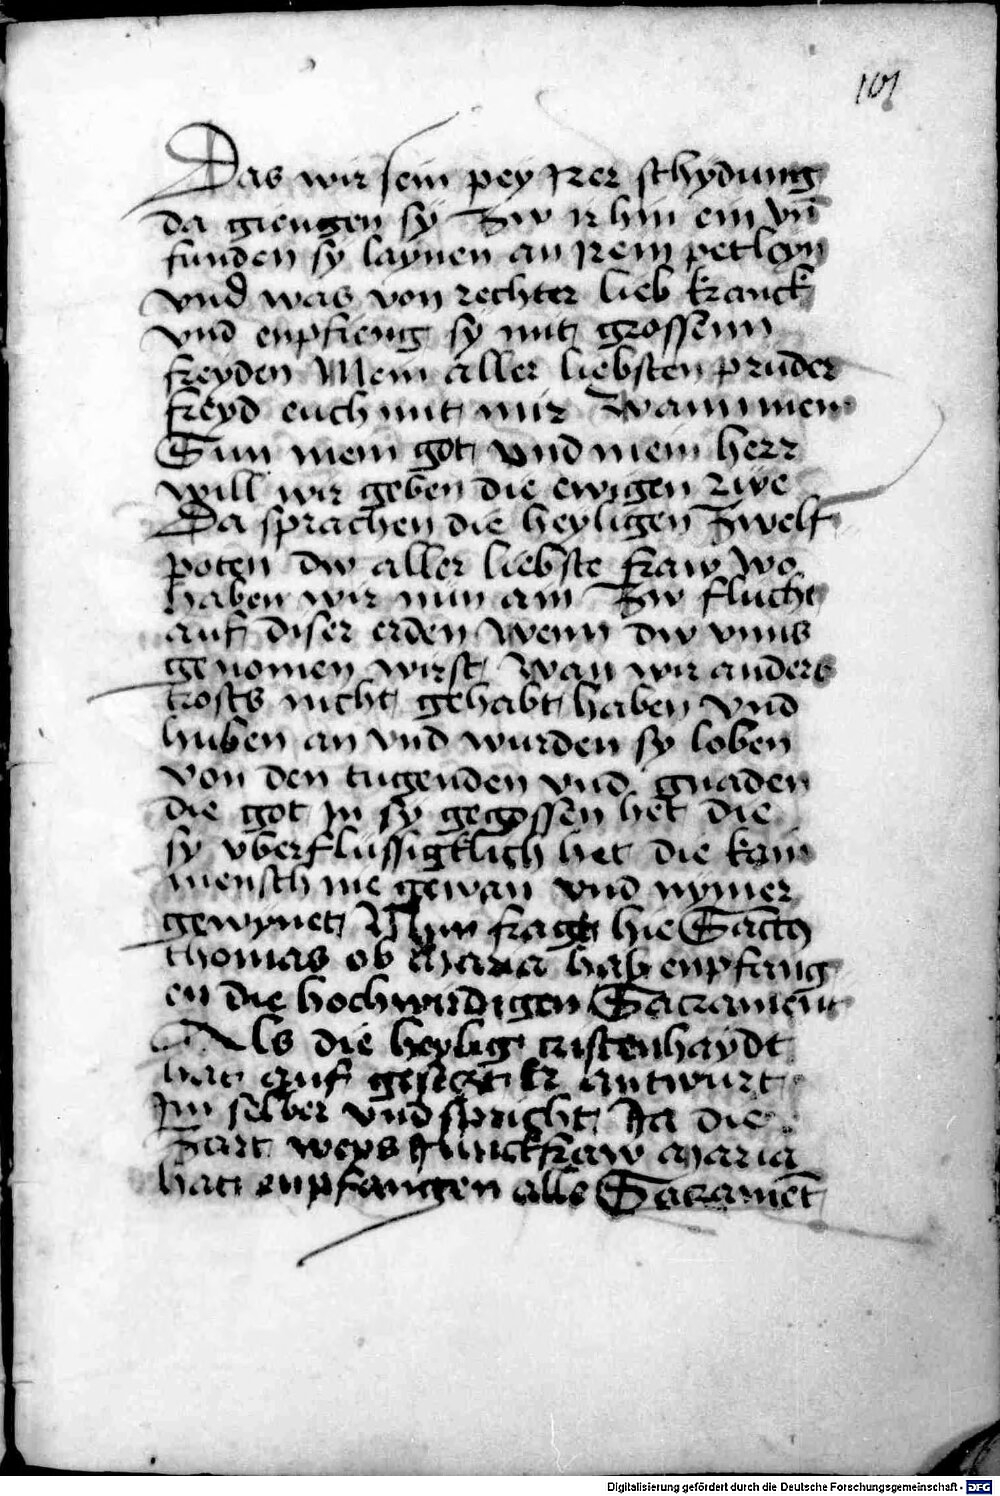 101
Das wir sein pey Irer schydung
da giengen sy zw ir hin ein vn̄
funden sy laynen an Irem petleyn
vnd was von rechter lieb kranck
vnd enpfieng sy mit grossenn
freyden Mein aller liebsten prüder
freyd euch mit mir wann mein
Sun mein got vnd mein herr
will mir geben die ewigen rwe
Da sprachen die heyligen zwelf
poten Dw aller liebste fraw wo
haben wir nun ain zw flucht
auf diser erden wenn dw vnns
genomen wirst wan wir anders
trosts nicht gehabt haben vnd
huben an vnd wurden sy loben
von den tugenden vnd gnaden
die got In sy gegossen het die
sy vberflüssigklich het die kain
mensch nie gewan vnd nymer
gewynet Nun fragt hie Sanctus
thomas ob maria hab enpfang
en die hochwirdigen Sacrament
Als die heylig cristenhaydt
hat auf gesetzt Er antwurt
Im selber vnd spricht Ja die
zart weys Junckfraw maria
hat enpfangen alle Sacramēt
Digitalisierung gefördert durch die Deutsche Forschungsgemeinschaft - DFG